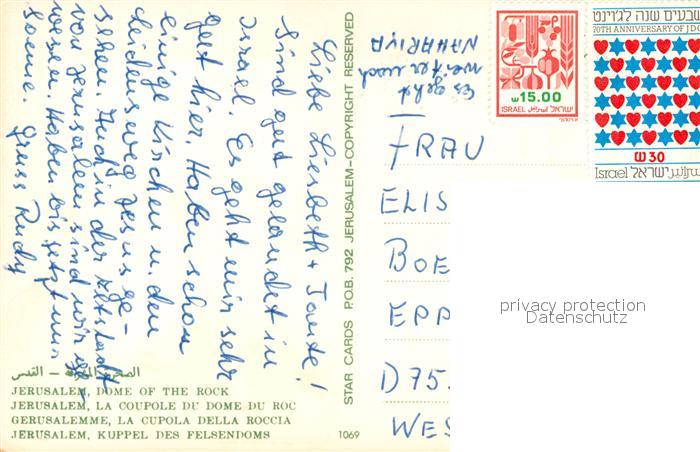 Liebe Liesbeth + Tante!
Sind gut gelandet in
Israel. Es geht mir sehr
gut hier. Haben schon
einige Kirchen u. den
Leidensweg Jesus ge-
sehen. Auch in der Altstadt
von Jerusalem sind wir ge-
wesen. Haben bis jetzt nur
Sonne. Gruss Rudy
الصخرة المشرفة – القدس
JERUSALEM, DOME OF THE ROCK
JERUSALEM, LA COUPOLE DU DOME DU ROC
GERUSALEMME, LA CUPOLA DELLA ROCCIA
JERUSALEM, KUPPEL DES FELSENDOMS
1069
STAR CARDS P.O.B. 792 JERUSALEM–COPYRIGHT RESERVED
Es geht
weiter nach
NAHARIYA
ש 15.00
ISRAEL اسرائيل ישראל
שבעים שנה לג'וינט
70TH ANNIVERSARY OF JDC
ש 30
Israel اسرائيل ישראל
FRAU
ELIS
BOE
EPP
D75.
WES
privacy protection
Datenschutz